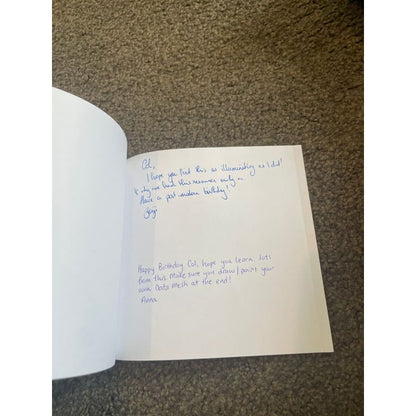 Col,
I hope you find this as illuminating as I did!
this summer only
Have a post modern birthday!
Happy Birthday Col, hope you learn lots
from this. Make sure you draw/paint your
own Data Mesh at the end!
Anna